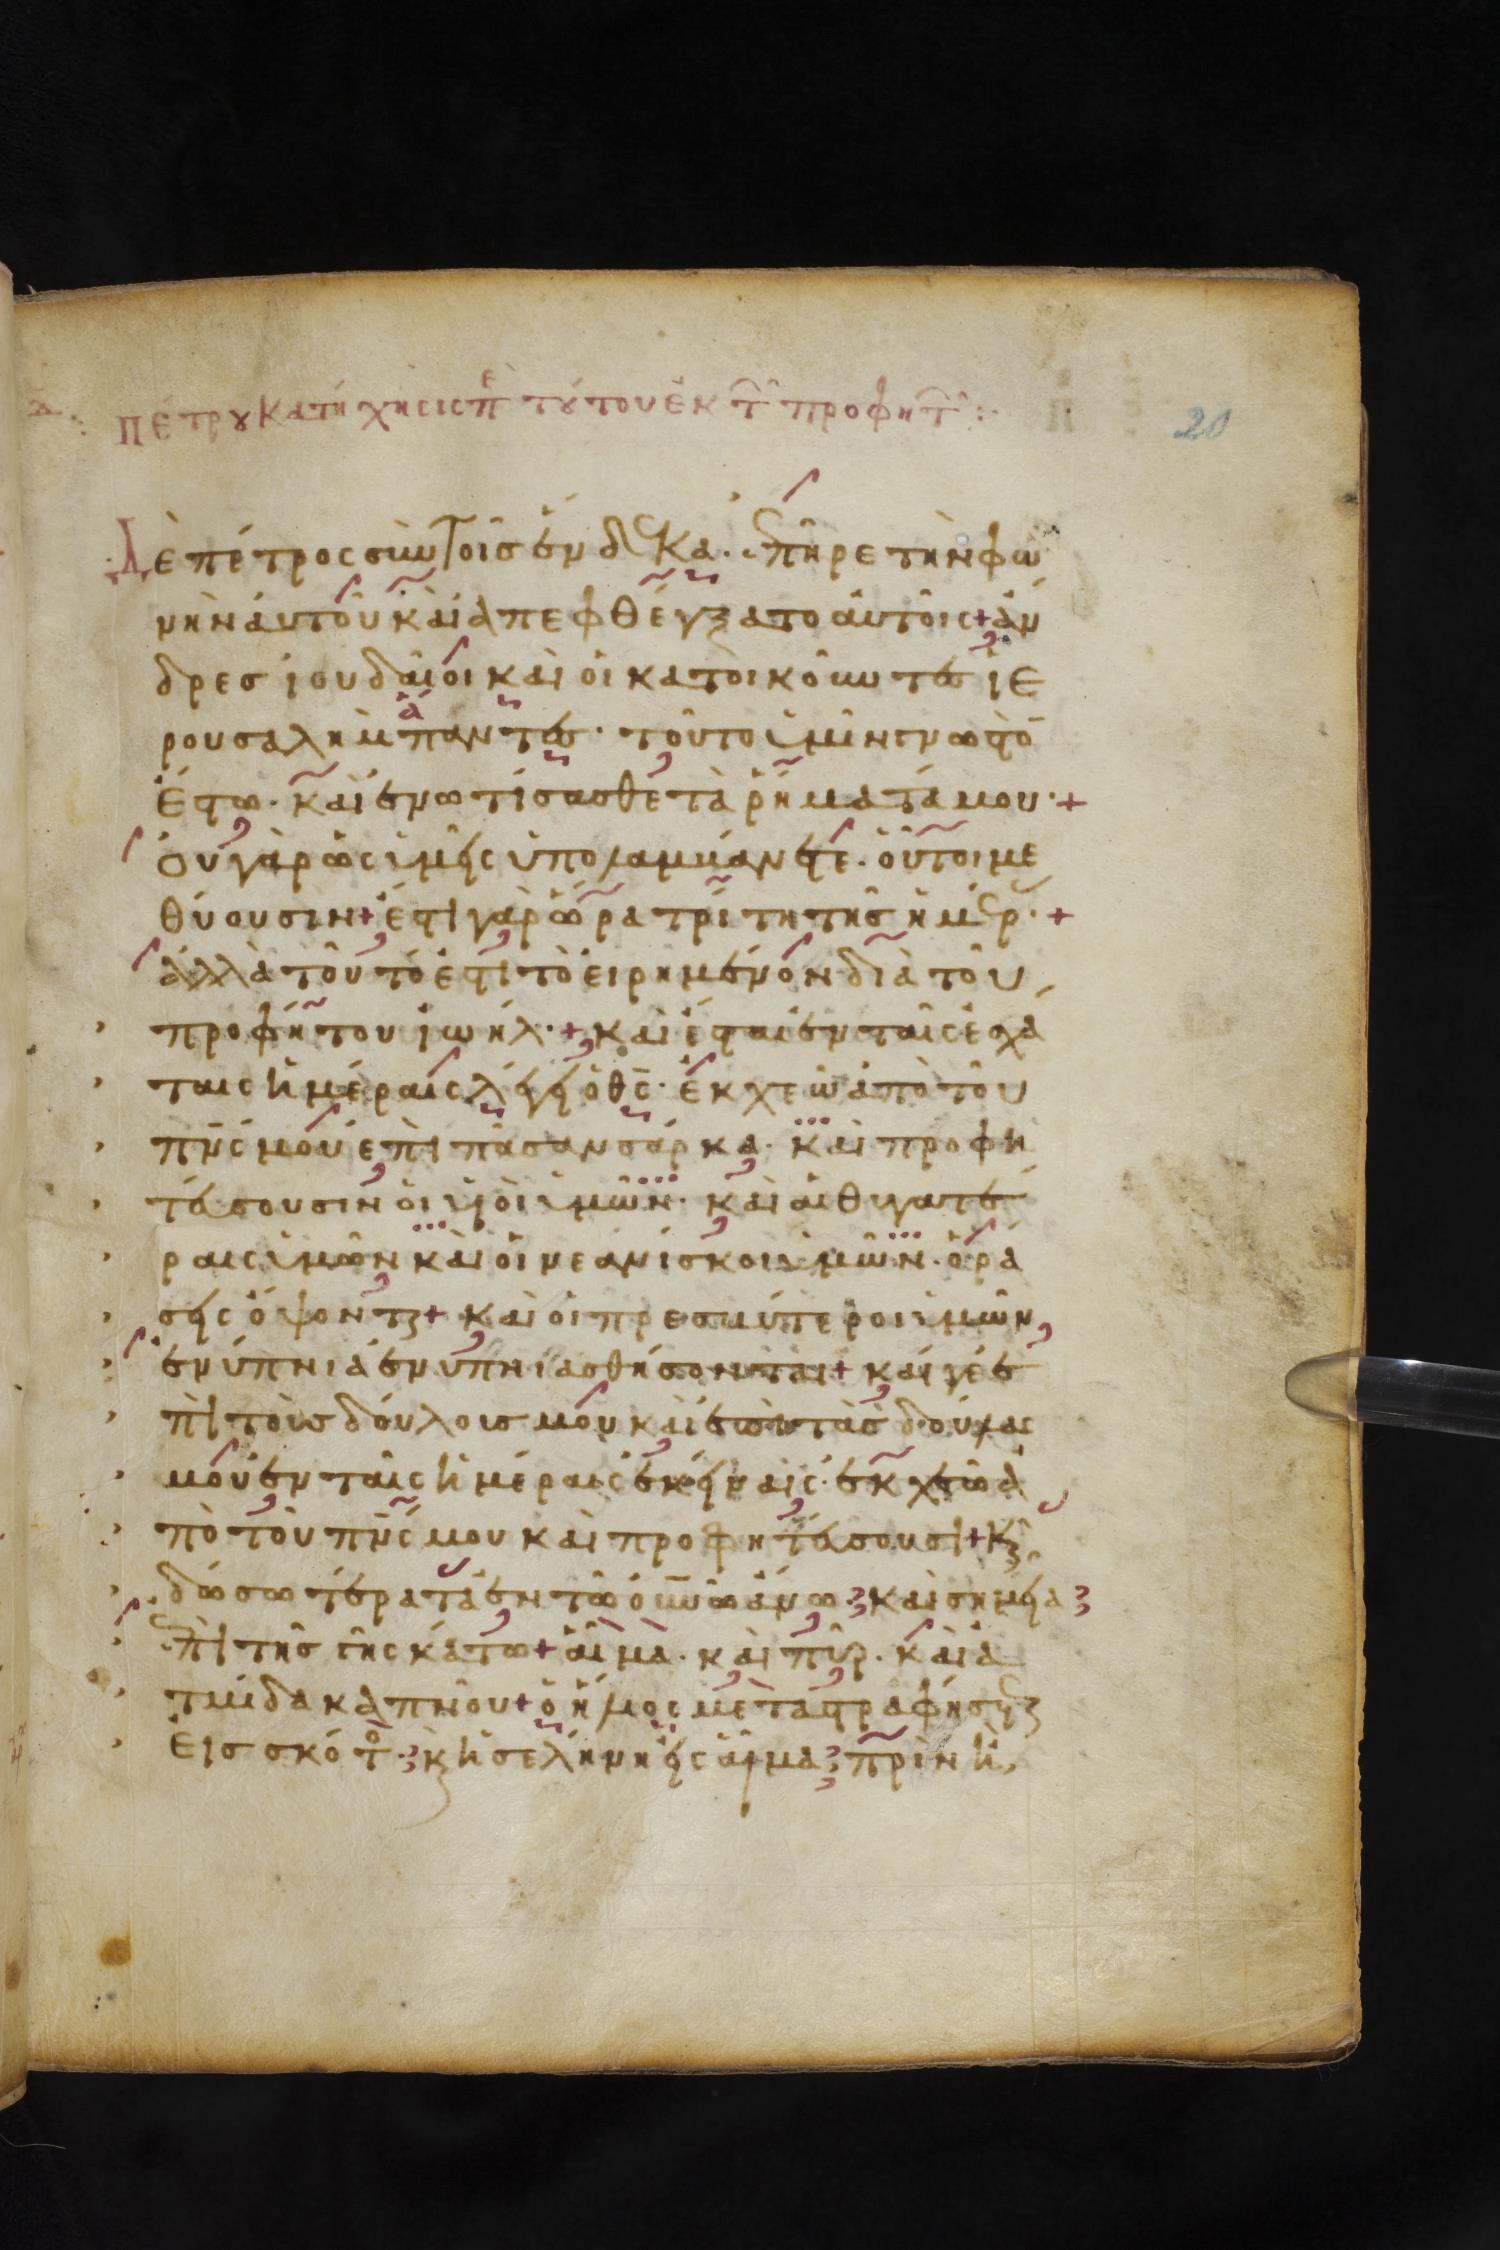 πέτρȣ κατήχησις πὲ τȣτου ἐκ τ προφητ :·
20
Δὲ πέτρος σὺν τοῖς ἕνδεκα· ἐπῆρε τὴν φω
νὴν ἀυτοῦ καὶ ἀπεφθέγξατο αὐτοῖς + ἄν
δρες ἰουδαῖοι καὶ οἱ κατοικοῦντες ἰε
ρουσαλὴμ ἅπαντες· τοῦτο ὑμῖν γνωστὸν
ἔστω· καὶ ἐνωτίσασθε τὰ ῥήματά μου· +
Ὀυ γὰρ ὡς ὑμεῖς ὑπολαμβάνετε· οὗτοι με
θύουσιν + ἔστι γὰρ ὥρα τρίτη τῆς ἡμέρ· +
ἀλλὰ τοῦτό ἐστι τὸ ἐιρημένον διὰ τοῦ
προφήτου ἰωήλ· + καὶ ἔσται ἐν ταῖς ἐσχά
ταις ἡμέραις λέγει ὁ θς· ἐκχεῶ ἀπὸ τοῦ
πνς μου ἐπὶ πᾶσαν σάρκα· καὶ προφη
τεύσουσιν ὁι ὑιοὶ ὑμῶν· καὶ ἁι θυγατέ
ραις ὑμῶν καὶ ὁι νεανίσκοι ὑμῶν· ὁρά
σεις ὄψοντϗ + καὶ ὁι πρεσβύτεροι ὑμῶν
ἐνύπνια ἐνυπνιασθήσονται + καί γε ἐ
πὶ τοὺς δούλους μου καὶ ἐπὶ τὰς δούλας
μου ἐν ταῖς ἡμέραις ἐκείναις· ἐκχεῶ ἀ
πὸ τοῦ πνς μου καὶ προφητεύσουσι + κϗ
δώσω τέρατα ἐν τῶ ὀυνῶ ἄνω· καὶ σημεῖα
ἐπὶ τῆς γῆς κάτω + αἷμα· καὶ πῦρ· καὶ ἀ
τμίδα καπνοῦ + ὁ ἥλιος μεταστραφήσετϗ
ἐις σκότο· κϗ ἡ σελήνη εἰς αἷμα· πρὶν ἢ